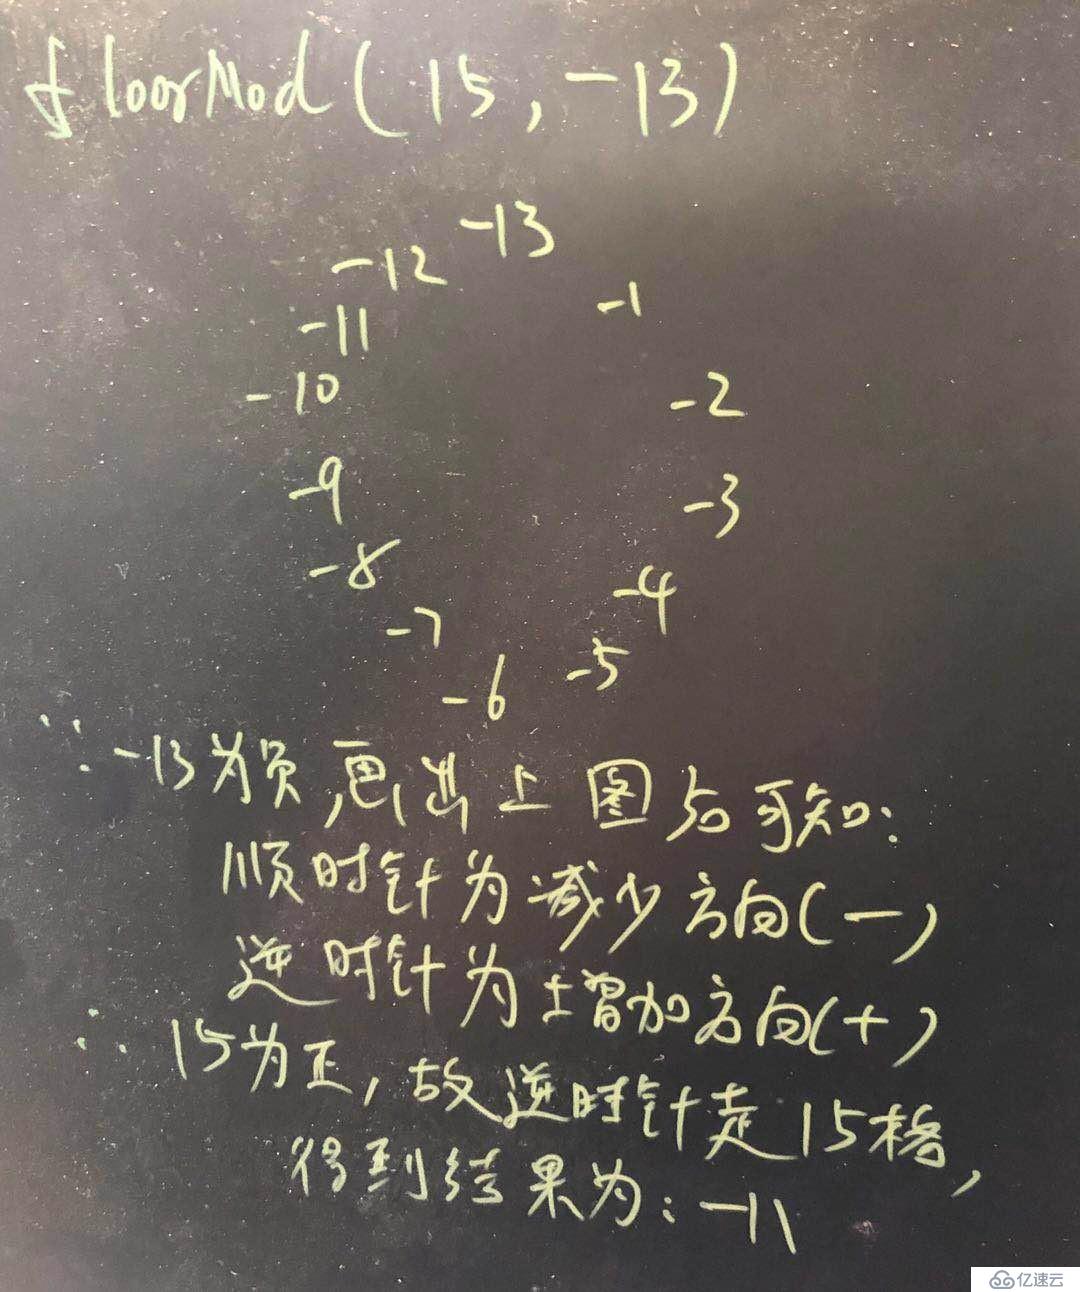 floorMod(15,-13)
-13
-12
-1
-11
-10
-2
-9
-3
-8
-4
-7
-5
-6
∵-13为负,画出上图后可知:
顺时针为减少方向(-)
逆时针为增加方向(+)
∴15为正,故逆时针走15格,
得到结果为:-11
亿速云